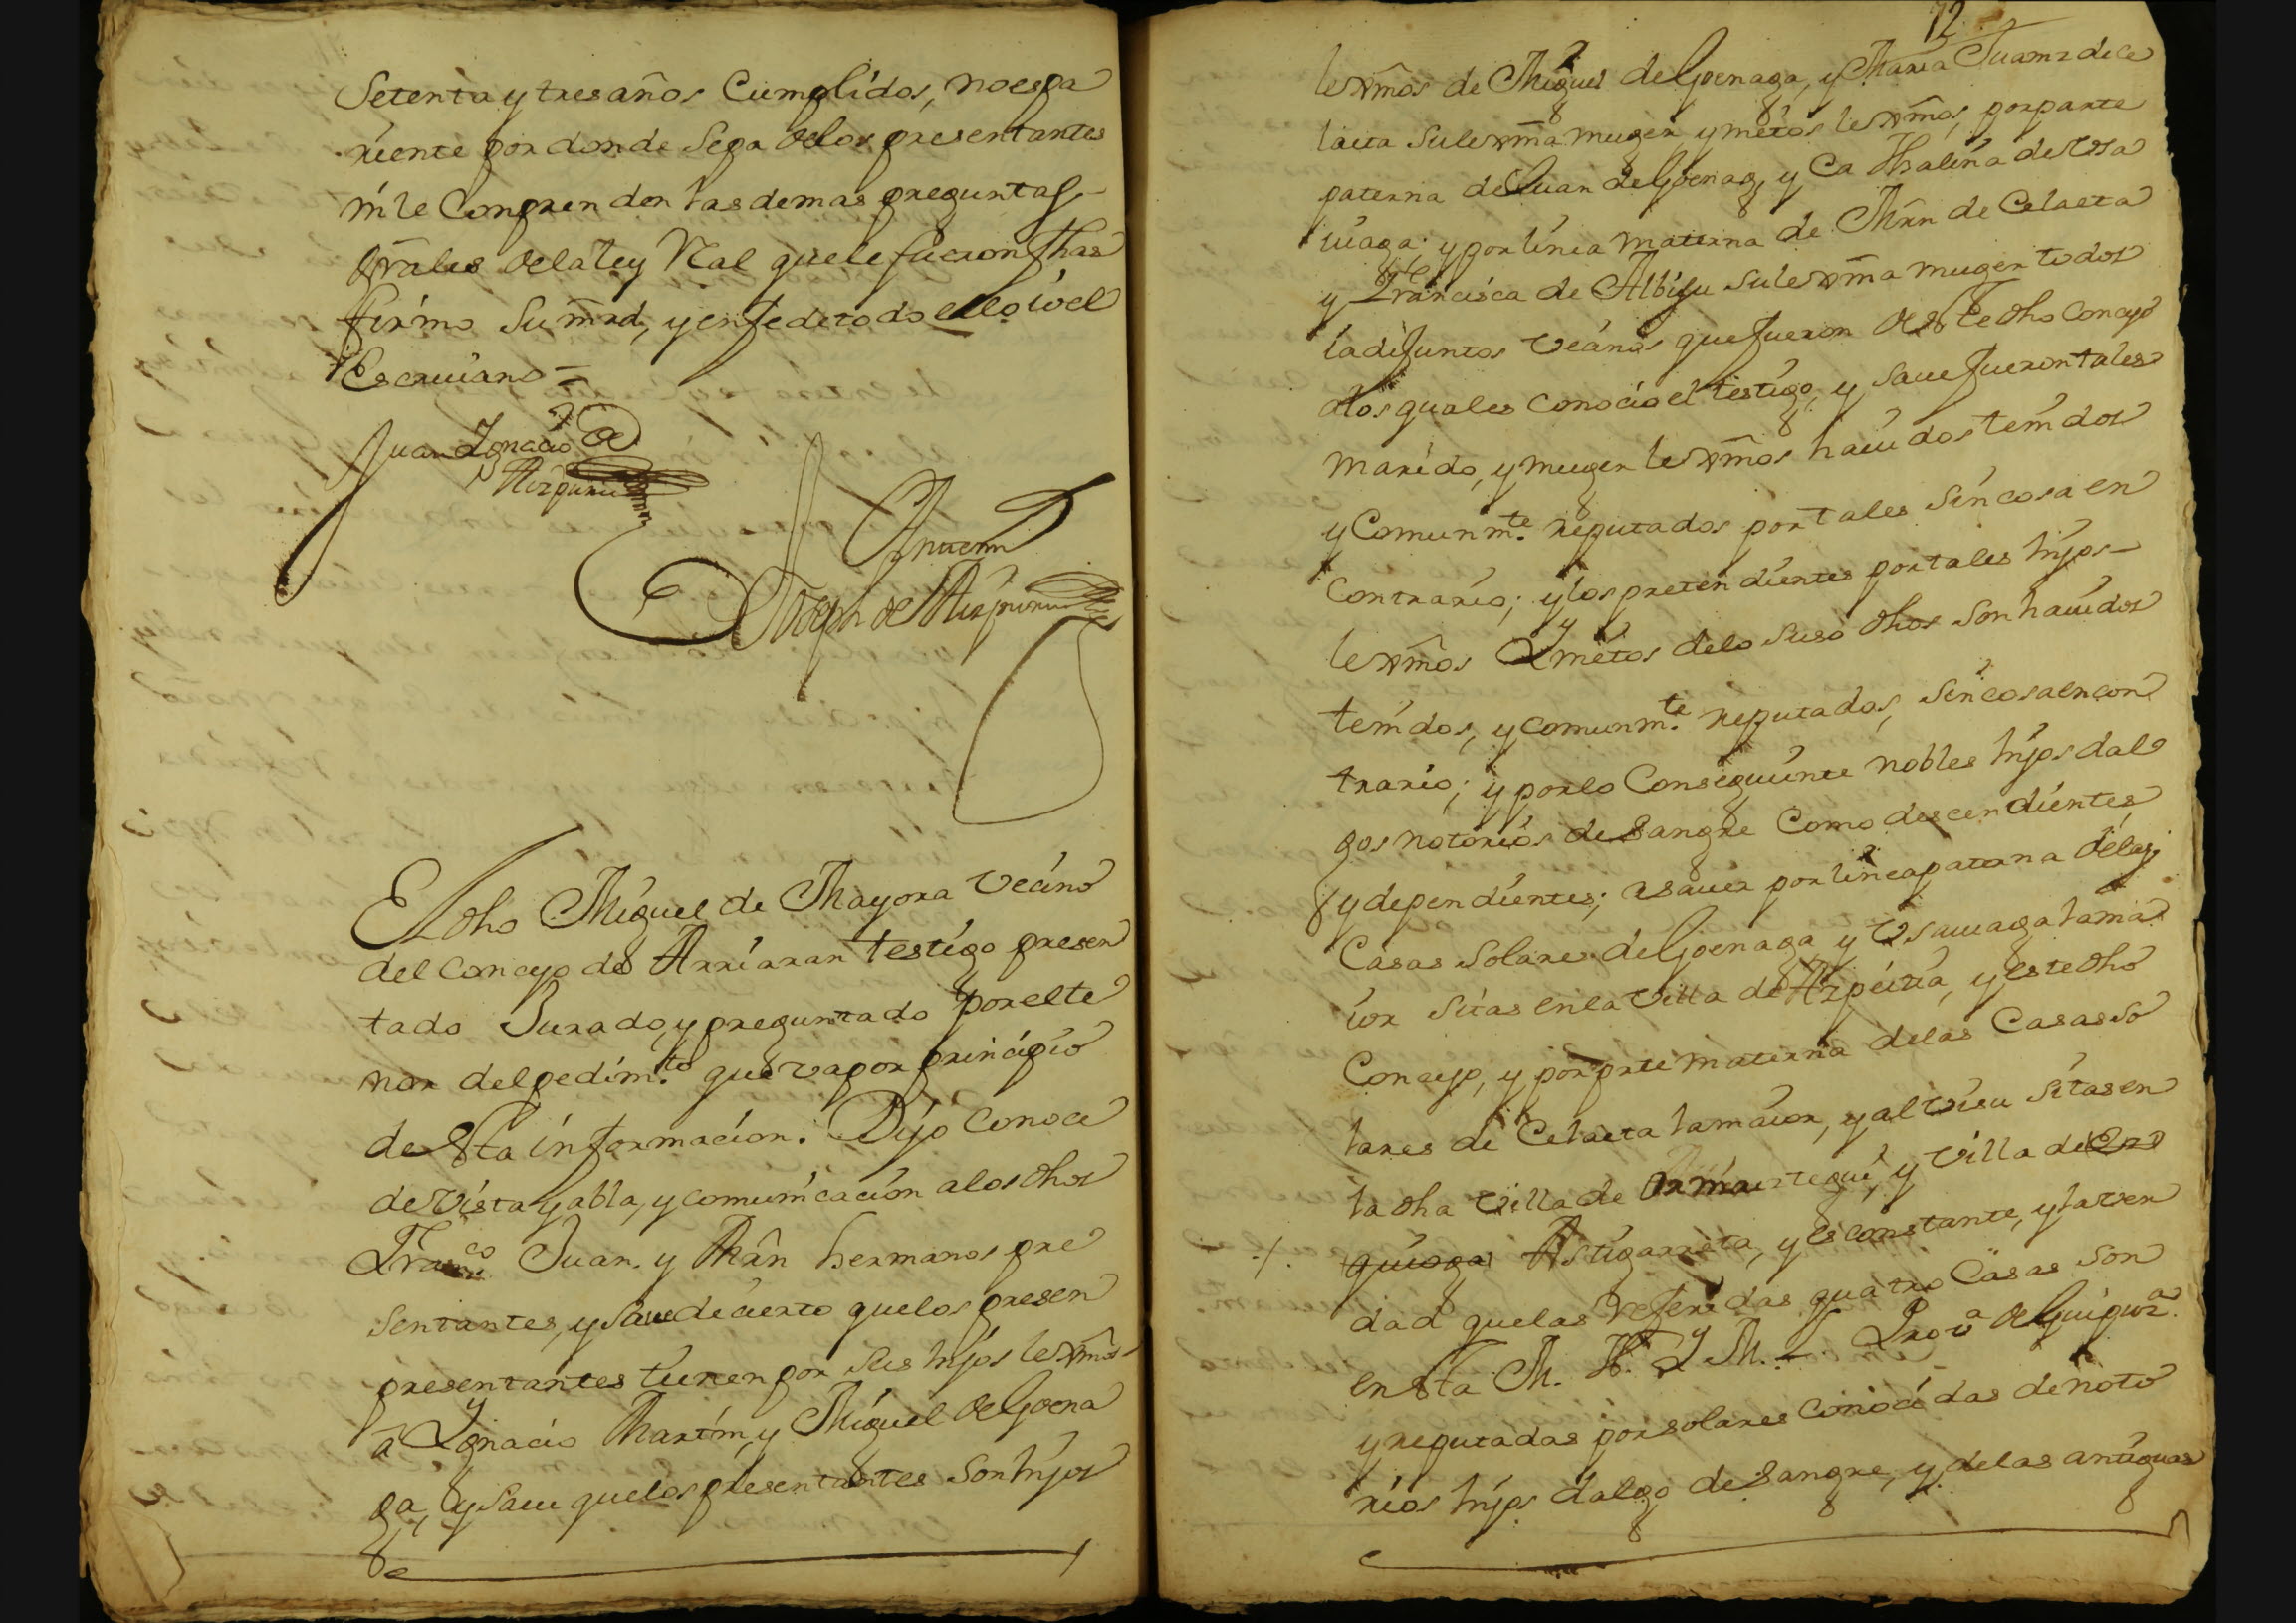 Setenta y tres años Cumplidos, no es pa
riente por donde Sepa de los presentantes
ni le Conprenden las demas preguntas
grãles de la ley Ral que le fueron fhas
firmo Su mrd, y en fe de todo ello io el
Escriuano =
Juan Ygnacio de
Aizpuru
Antemi
Joseph de Aizpuru
El dho Miguel de Mayora Vecino
del Concejo de Arriaran testigo presen
tado Jurado, y preguntado por el te
nor del pedim.to que va por principio
de esta informacion. Dijo Conoce
de vista y abla, y comunicacion a los dhos
Fran.co Juan. y Mrn hermanos pre
sentantes, y Saue de cierto que los presen
presentantes tienen por sus hijos lexmos
a Ygnacio Martin, y Miguel de Goena
ga, y Saue que los presentantes Son hijos
72
lexmos de Miguel de Goenaga, y Maria Juaniz de Ce
laeta su lexma muger, y nietos lexmos, por parte
paterna de Juan de Goenaga, y Cathalina de Vsa
uiaga; y por linia materna de Mrn de Celaeta
y Francisca de Albisu su lexma muger todos
ia difuntos vecinos que fueron de este dho Concejo
a los quales conocio el testigo, y saue fueron tales
marido, y muger lexmos hauidos tenidos
y Comunm.te reputados por tales sin cosa en
Contrario; y los pretendientes por tales hijos
lexmos Y nietos de lo suso dhos son hauidos
tenidos, y comunm.te reputados, sin cosa en con
trario; y por lo Conseguiente nobles hijos dal
gos notorios de Sangre Como descendientes,
y dependientes; asauer por linea paterna de las
Casas Solares de Goenaga y Vsauiaga la ma
ior sitas en la Villa de Azpeitia, y este dho
Concejo, y por prte materna de las Casas So
lares de Celaeta la maior, y albisu sitas en
la dha Villa de y Villa de
./. Astigarreta, y es constante, y la ver
dad que las Referidas quatro Casas son
en esta M. N. Y M. L. Prov.a de Guipuz.a
y reputadas por solares conocidas de noto
rios hijos dalgo de Sangre, y de las antiguas